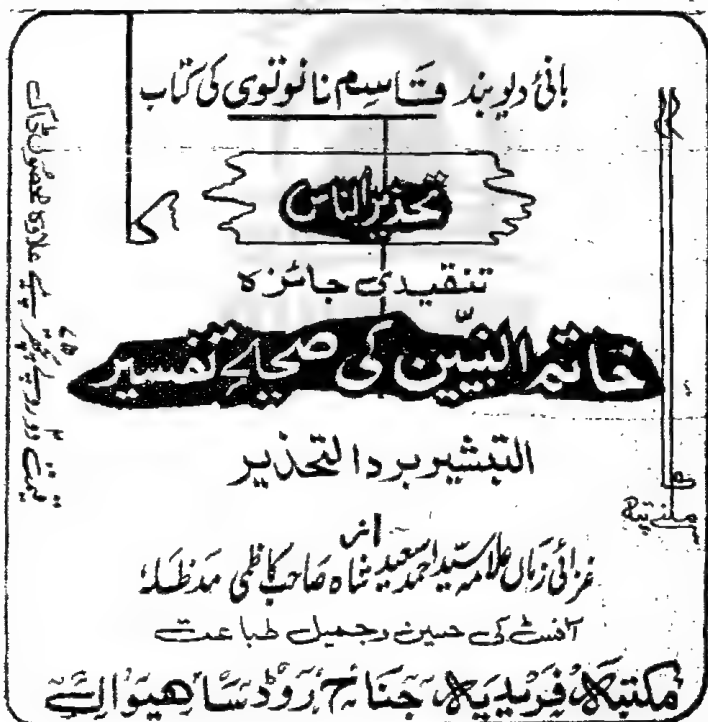 بانئ دیوبند قاسم نانوتوی کی کتاب
تحذیر الناس
تنقیدی جائزہ
خاتم النبیّین کی صحیح تفسیر
التبشیر برد التحذیر
از
غزائی زماں علامہ سید احمد سعید شاہ صاحب کاظمی مدظلہ
آفسٹ کی حسین وجمیل طباعت
ملنے پتہ
مکتبہ فریدیہ، جناح روڈ ساہیوال
قیمت دو روپے علاوہ محصول ڈاک